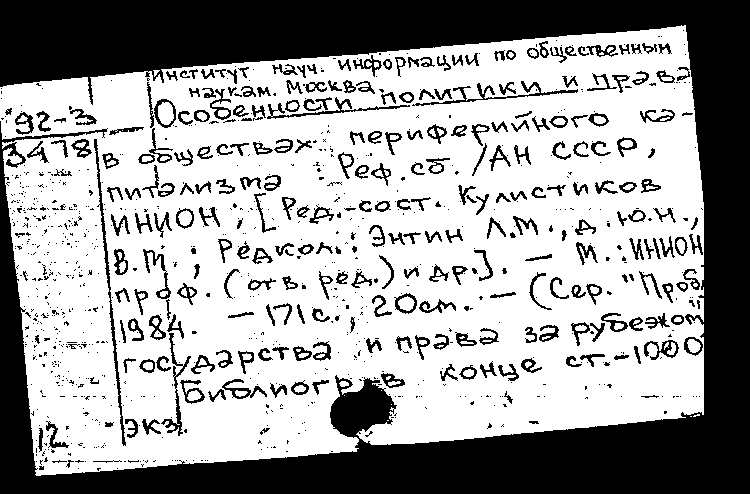 Институт науч. информации по общественным
наукам. Москва.
92-3
Особенности политики и права
3478
в обществах периферийного ка-
питализма : Реф. сб. /АН СССР,
ИНИОН ; [Ред.-сост. Кулистиков
В.М. ; Редкол.: Энтин Л.М., д.ю.н.,
проф. (отв. ред.) и др.]. — М. : ИНИОН
1984. — 171 с. ; 20 см. — (Сер. "Пробл.
государства и права за рубежом"
Библиогр. в конце ст. - 1000
экз.
12